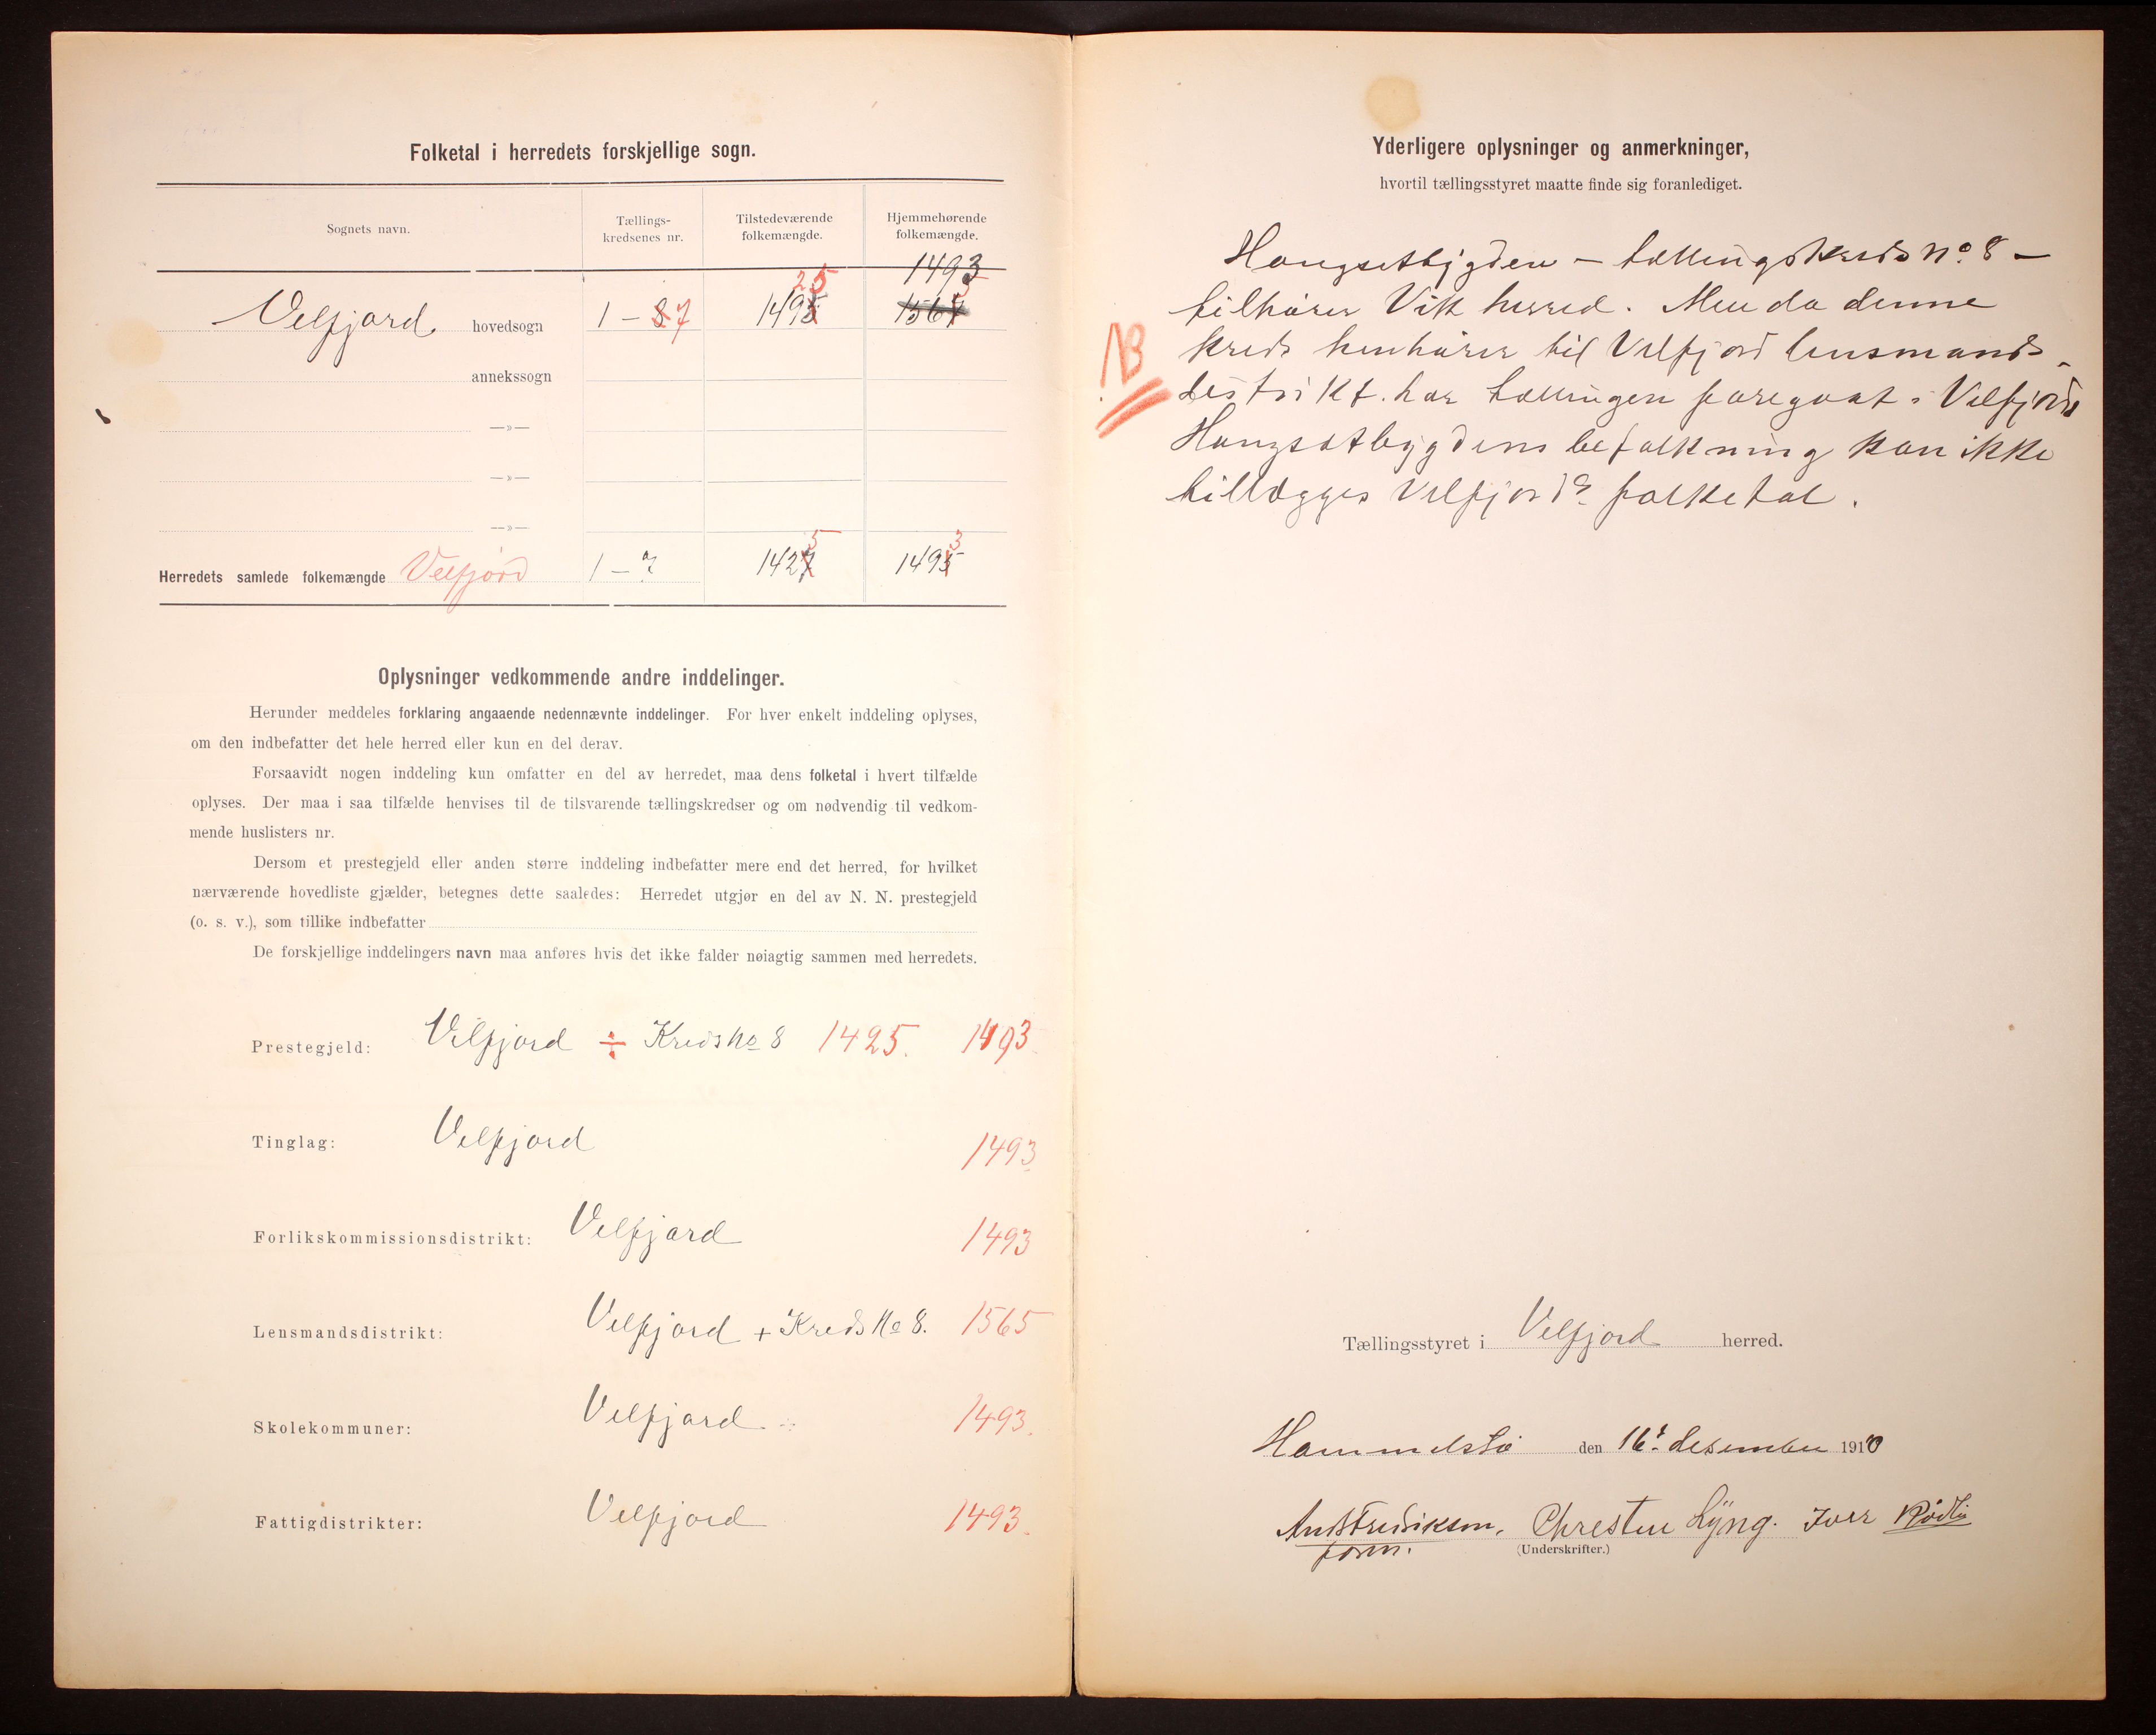 Folketal i herredets forskjellige sogn.
Sognets navn.
Tællings-
kredsenes nr.
Tilstedeværende
folkemængde.
Hjemmehørende
folkemængde.
1493
25
Velfjord hovedsogn 1 – 8 7 1495 1567
annekssogn
—»—
—»—
—»—
5 3
Herredets samlede folkemængde Velfjord 1 – 7 1427 1495
Oplysninger vedkommende andre inddelinger.
Herunder meddeles forklaring angaaende nedennævnte inddelinger. For hver enkelt inddeling oplyses,
om den indbefatter det hele herred eller kun en del derav.
Forsaavidt nogen inddeling kun omfatter en del av herredet, maa dens folketal i hvert tilfælde
oplyses. Der maa i saa tilfælde henvises til de tilsvarende tællingskredser og om nødvendig til vedkom-
mende huslisters nr.
Dersom et prestegjeld eller anden større inddeling indbefatter mere end det herred, for hvilket
nærværende hovedliste gjælder, betegnes dette saaledes: Herredet utgjør en del av N. N. prestegjeld
(o. s. v.), som tillike indbefatter
De forskjellige inddelingers navn maa anføres hvis det ikke falder nøiagtig sammen med herredets.
Prestegjeld: Velfjord ÷ Kreds No 8 1425. 1493
Tinglag: Velfjord 1493
Forlikskommissionsdistrikt: Velfjord 1493
Lensmandsdistrikt: Velfjord + Kreds No 8. 1565
Skolekommuner: Velfjord 1493.
Fattigdistrikter: Velfjord 1493.
Yderligere oplysninger og anmerkninger,
hvortil tællingsstyret maatte finde sig foranlediget.
Hongsetbygden – tællingskreds No. 8 –
tilhører Vik herred. Men da denne
NB
kreds henhører til Velfjord lensmands-
distrikt. har tællingen foregaat i Velfjord
Hongsetbygdens befolkning kan ikke
tillægges Velfjords folketal.
Tællingsstyret i Velfjord herred.
Hommelstø den 16. desember 1910
And Fredriksen, Chresten Lyng. Iver Rødli
form.
(Underskrifter.)